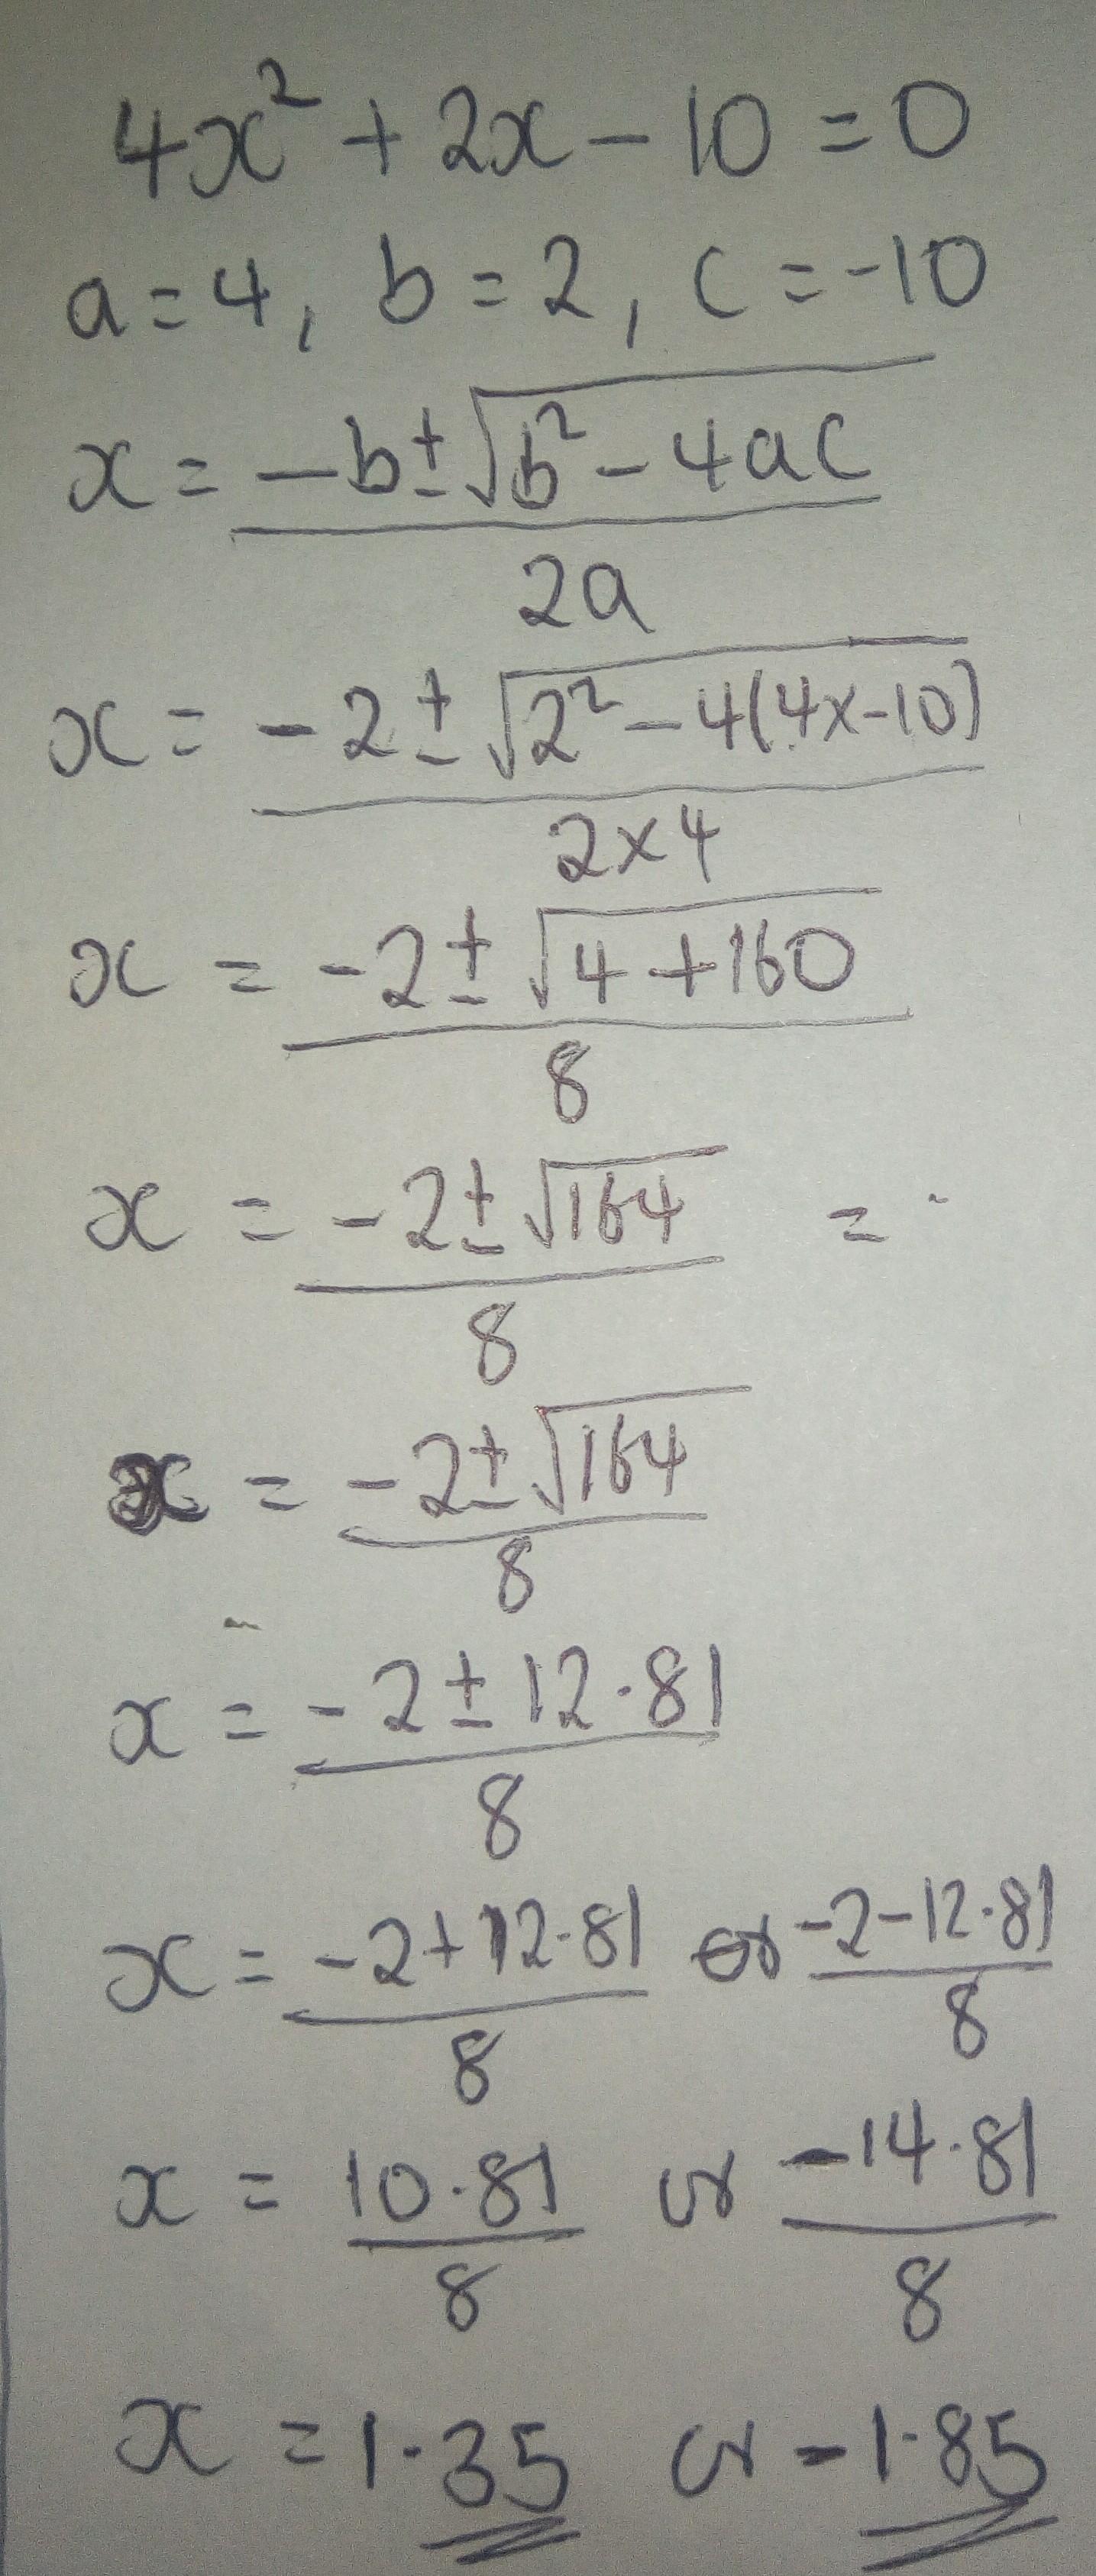 4x² + 2x − 10 = 0
a = 4, b = 2, c = -10
x = −b ± √(b² − 4ac) / 2a
x = −2 ± √(2² − 4(4x−10)) / 2×4
x = −2 ± √(4 + 160) / 8
x = −2 ± √164 / 8 =
x = −2 ± √164 / 8
x = −2 ± 12·81 / 8
x = −2 + 12·81 / 8 or −2 − 12·81 / 8
x = 10·81 / 8 or −14·81 / 8
x = 1·35 or −1·85